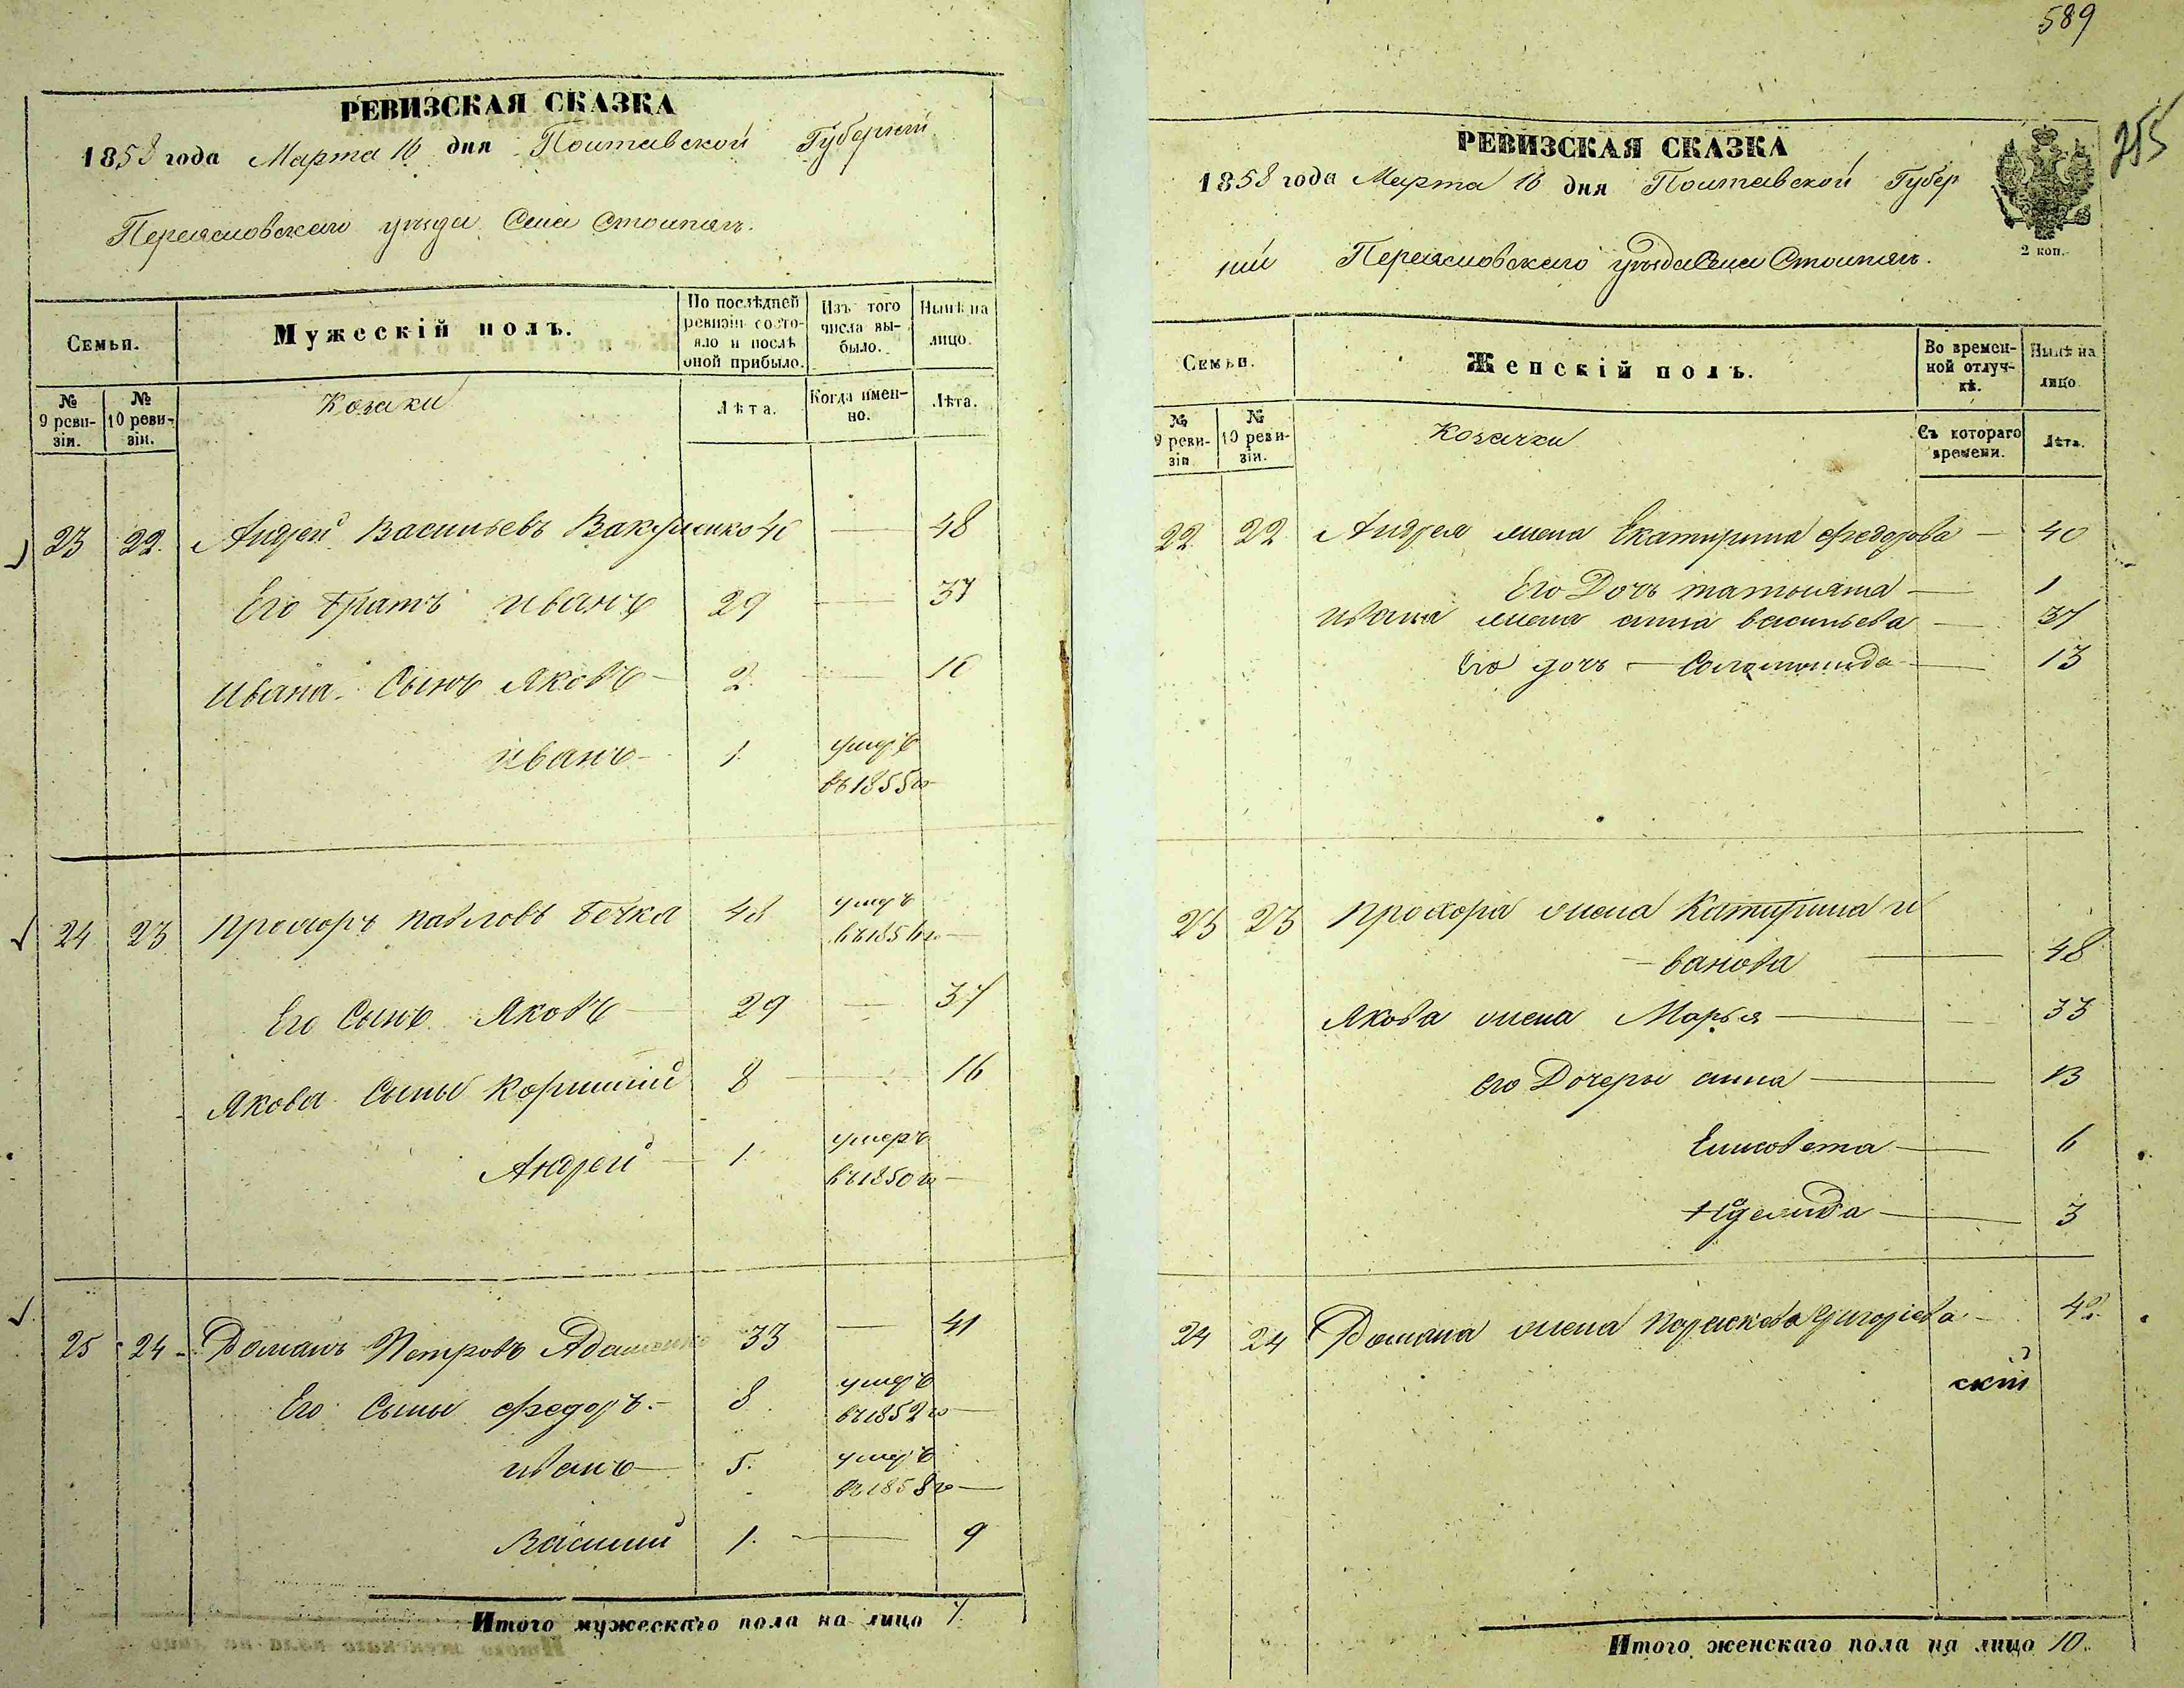 РЕВИЗСКАЯ СКАЗКА
1858 года Марта 16 дня Полтавской Губерніи
Переясловскаго уѣзда Села Стоипяг.
Семьи.
Мужескій полъ.
По послѣдней ревизіи состояло и послѣ оной прибыло.
Изъ того числа выбыло.
Нынѣ на лицо.
№ 9 ревизіи.
№ 10 ревизіи.
Козаки
Лѣта.
Когда именно.
Лѣта.
23 22. Андрей Васильевъ Вакуленко 40 — 48
Его братъ иванъ 29 — 37
Ивана Сынъ Яковъ 2 — 10
иванъ 1. умеръ
въ 1855 го
24 23 прохоръ павловъ бечка 48 умеръ
въ 1856 го
Его Сынъ Яковъ 29 — 37
Якова Сыны Корнилий 8 — 16
Андрей 1. умеръ
въ 1850 го
25 24 Романъ Петровъ Адаменко 33 — 41
Его Сыны федоръ 8 умеръ
въ 1852 го
иванъ 5. умеръ
въ 1858 го
Василий 1. — 9
Итого мужескаго пола на лицо 7.
589
255
РЕВИЗСКАЯ СКАЗКА
1858 года Марта 16 дня Полтавской Губер
ніи Переясловскаго уѣзда Села Стоипяг.
2 коп.
Семьи.
Женскій полъ.
Во временной отлучкѣ.
Нынѣ на лицо
№ 9 ревизіи
№ 10 ревизіи.
Козачки
Съ котораго времени.
Лѣта.
22 22 Андрея жена Екатирина федорова — 40
Его Дочъ татьяна — 1
Ивана жена анна васильева — 37
Его дочъ — Соломонида — 13
23 23 прохора жена Катирина и
ванова — 48
Якова жена Марья — 33
Его Дочеры анна — 13
Елисовета — 6
3
24 24 Романа жена Порасковa Григорьева — 42.
скій
Итого женскаго пола на лицо 10.